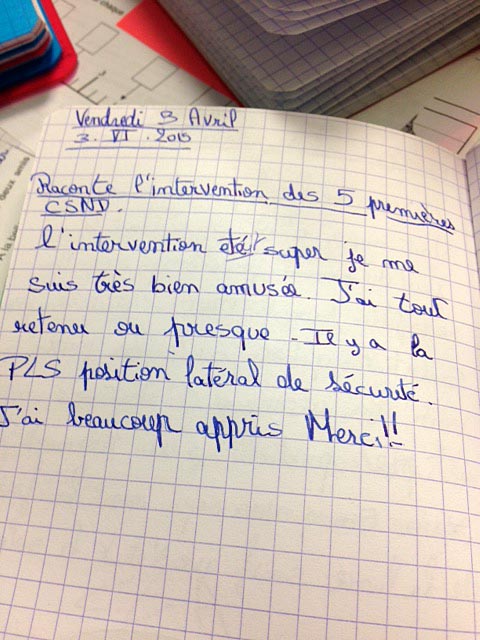 Vendredi 3 Avril
3. VI. 2015
Raconte l'intervention des 5 premières
CSND.
l'intervention été super je me
suis très bien amusée. J'ai tout
retenu ou presque - Il y a la
PLS position latéral de sécurité.
J'ai beaucoup appris Merci!!